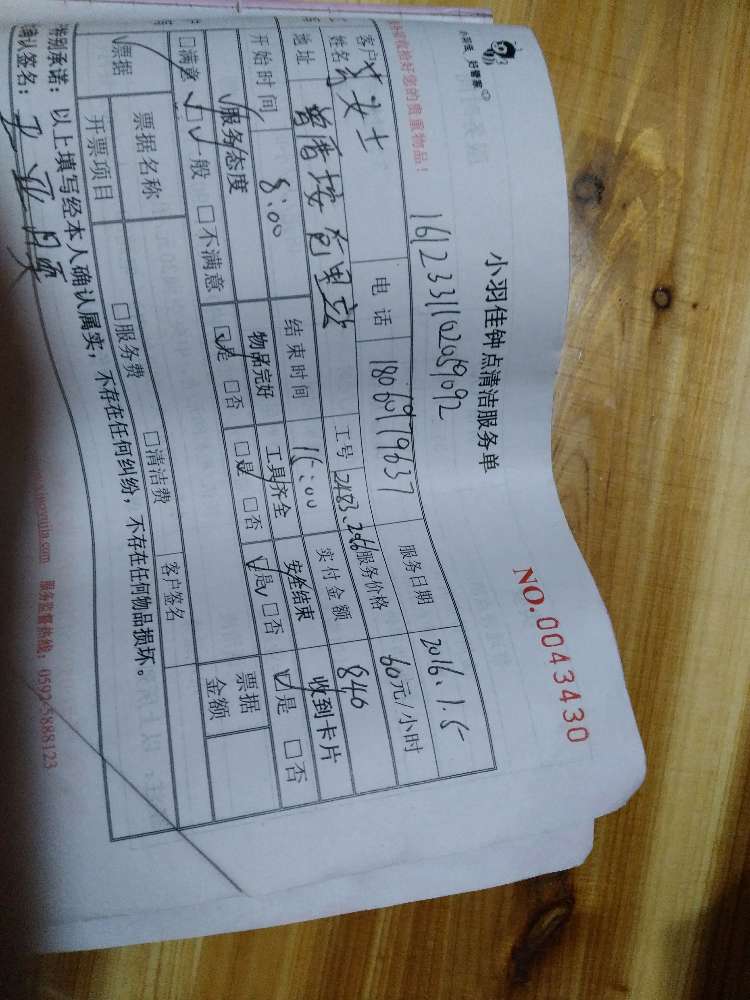 小羽佳 好管家
小羽佳钟点清洁服务单
NO.0043430
收拾好您的贵重物品!
161233110259092
客户姓名 女士 电话 18060979637 服务日期 2016.1.5
地址 工号 2483、2966 服务价格 60元/小时
开始时间 8:00 结束时间 15:00 实付金额 840
服务态度 物品完好 工具齐全 安全结束 收到卡片
□满意 □一般 □不满意 □是 □否 □是 □否 □是 □否 □是 □否
票据 票据名称 □服务费 □清洁费 票据金额
开票项目 客户签名
特别承诺:以上填写经本人确认属实,不存在任何纠纷,不存在任何物品损坏。
确认签名:
服务监督热线:0592-5888123